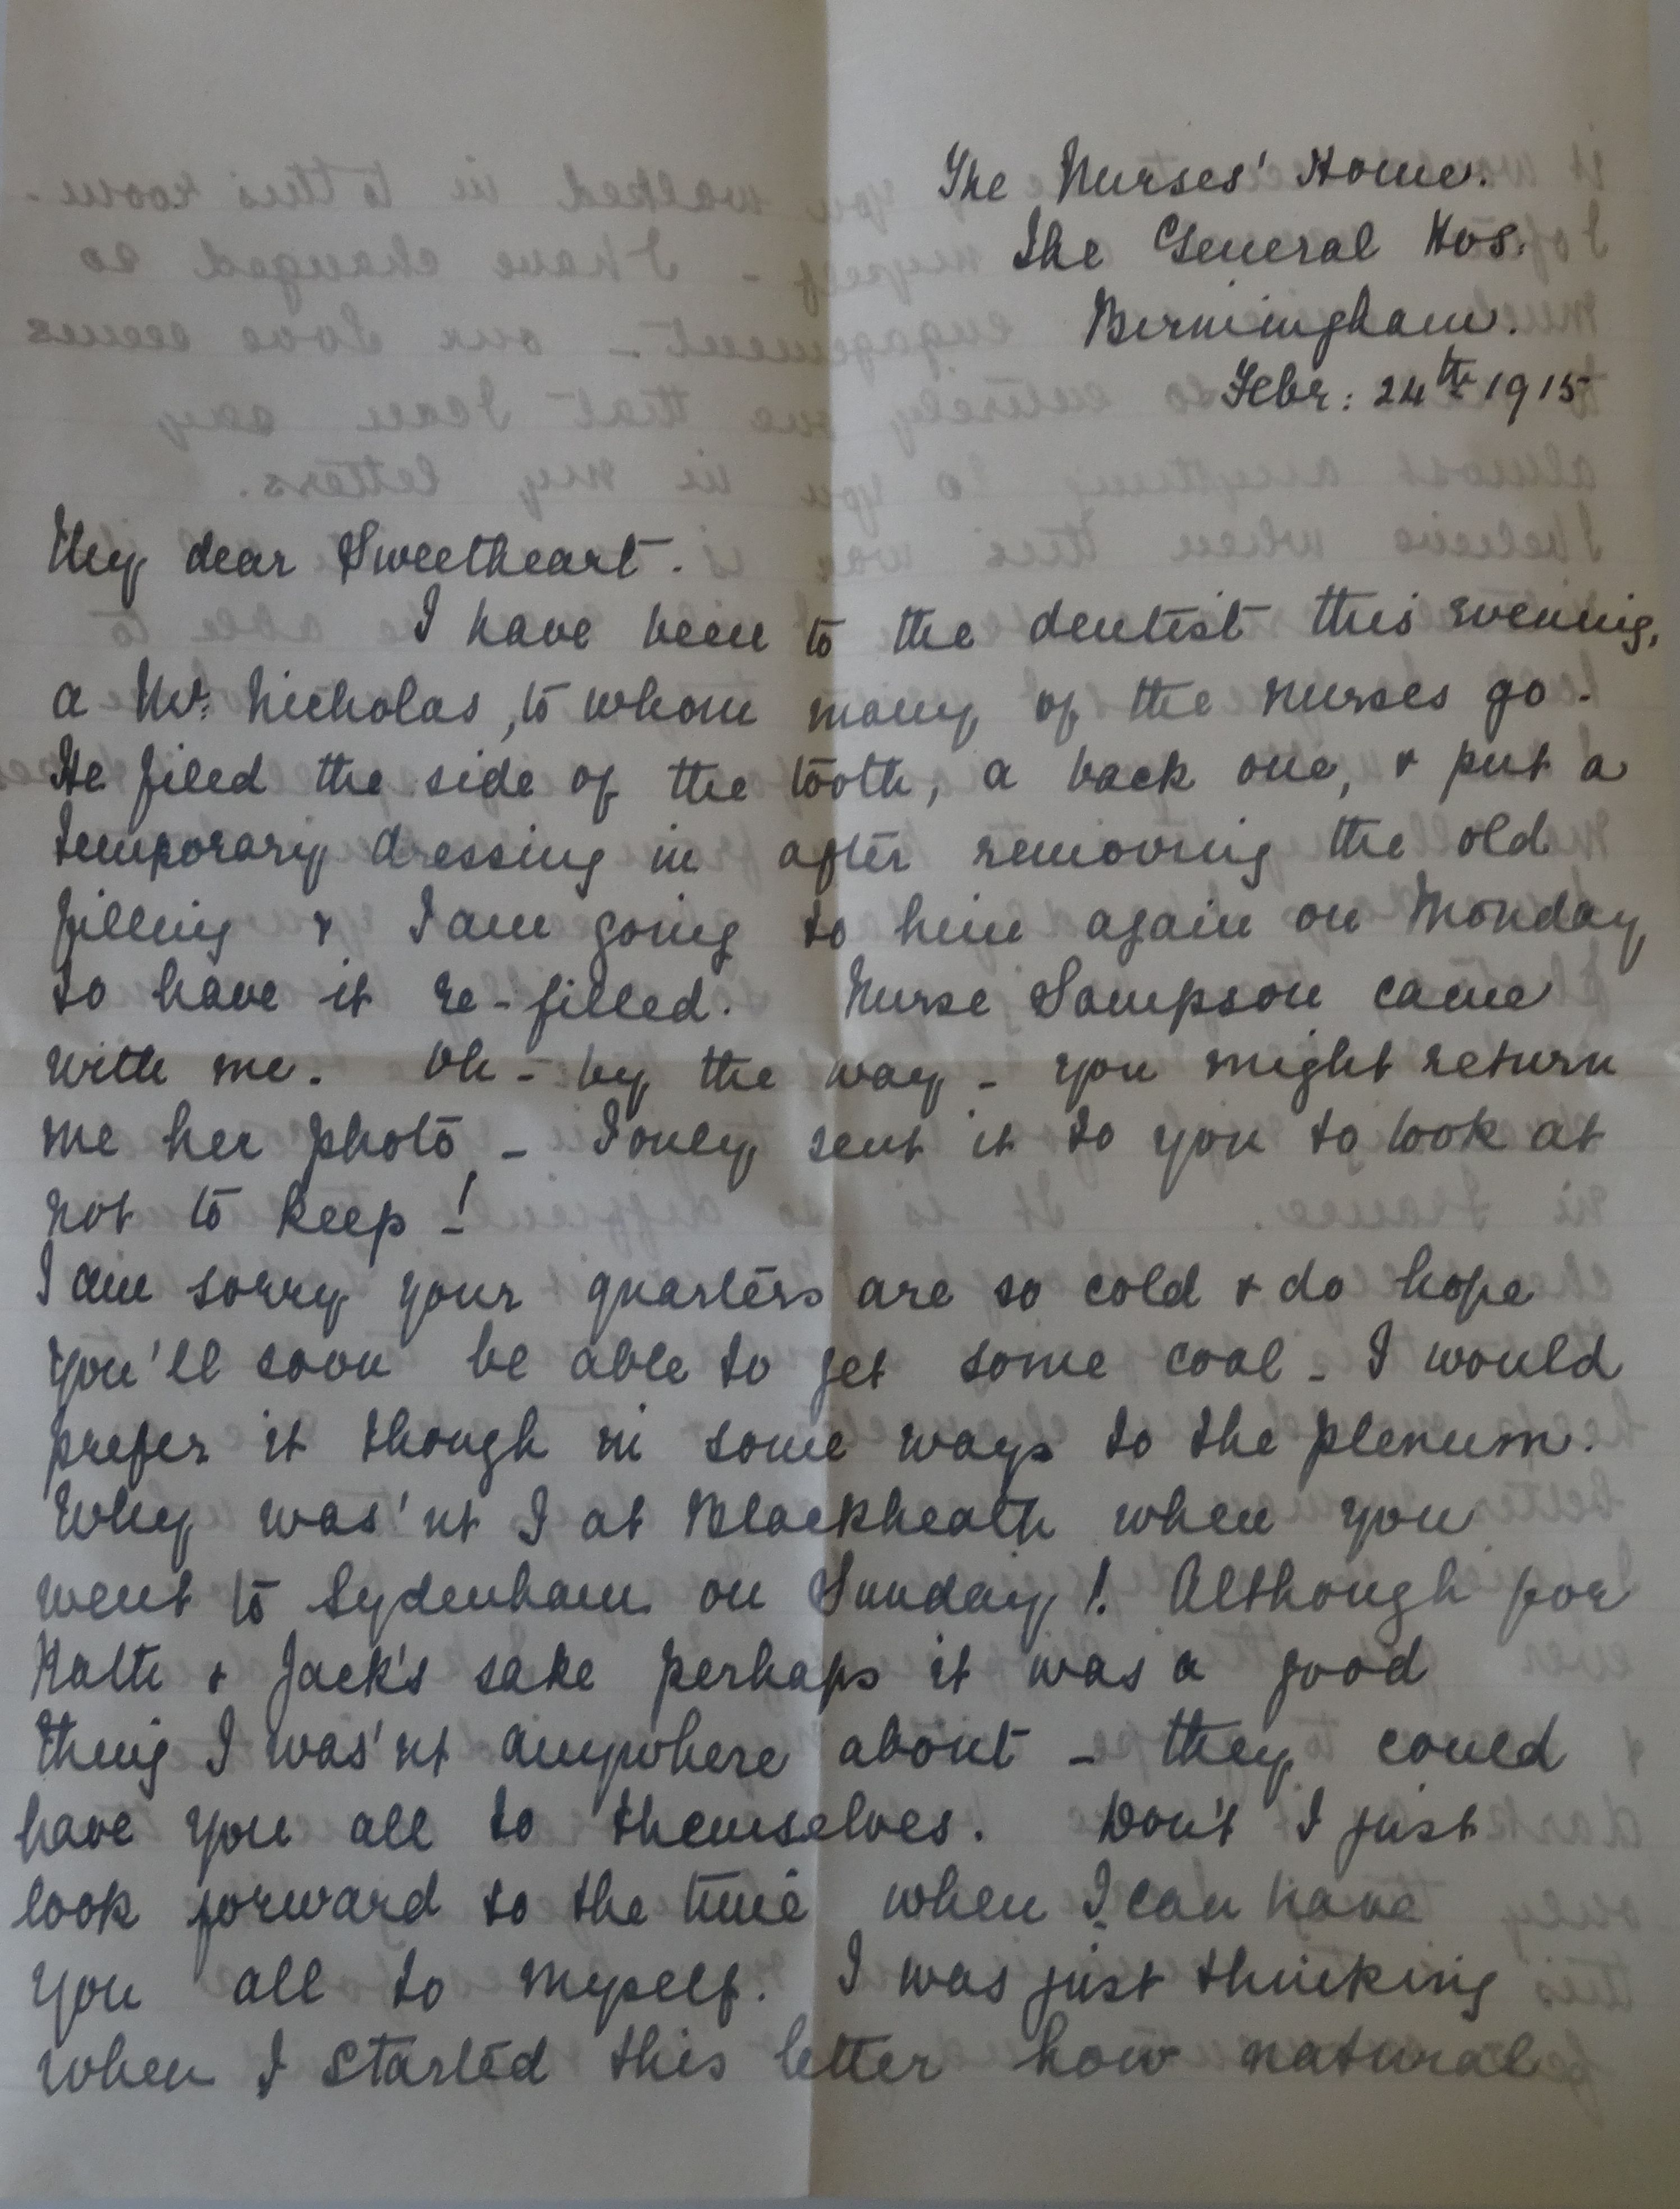 The Nurses' Home.
The General Hos.
Birmingham.
Febr: 24th 1915
My dear Sweetheart.
I have been to the dentist this evening,
a Mr. Nicholas, to whom many of the nurses go.
He filed the side of the tooth, a back one, & put a
temporary dressing in after removing the old
filling & I am going to him again on Monday
to have it re-filled. Nurse Sampson came
with me. Oh - by the way - you might return
me her photo - I only sent it to you to look at
not to keep!
I am sorry your quarters are so cold & do hope
you'll soon be able to get some coal - I would
prefer it though in some ways to the plenum.
Why was'nt I at Blackheath when you
went to Sydenham on Sunday! Although for
& Jack's sake perhaps it was a good
thing I was'nt anywhere about - they could
have you all to themselves. Don't I just
look forward to the time when I can have
you all to myself. I was just thinking
when I started this letter how natural